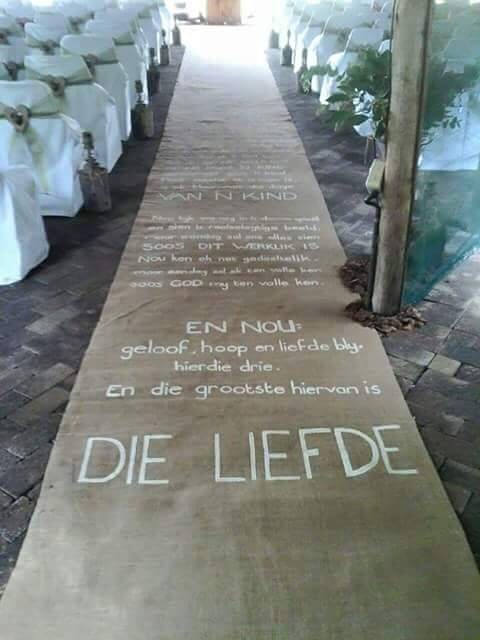 VAN 'N KIND
Nou kyk ons nog in 'n dowwe spieël
en sien 'n raaiselagtige beeld,
maar eendag sal ons alles sien
SOOS DIT WERKLIK IS
Nou ken ek net gedeeltelik.
maar eendag sal ek ten volle ken
soos GOD my ten volle ken.
EN NOU:
geloof, hoop en liefde bly.
hierdie drie.
En die grootste hiervan is
DIE LIEFDE